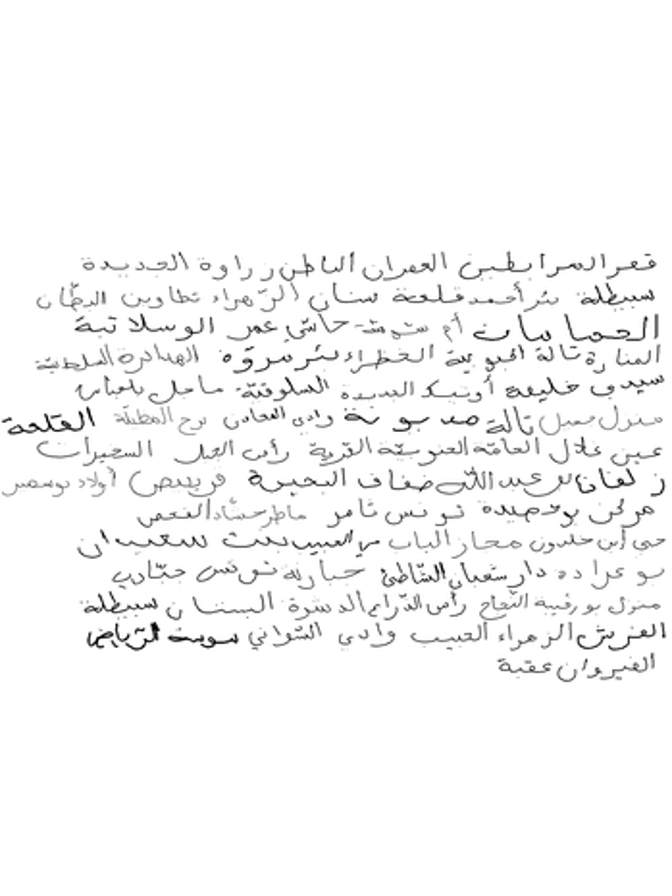 قصر المرابطين العمران الباطن زراوة الجديدة
سبيطلة بئر أحمد قلعة سنان الزهراء تطاوين الدخان
الحمامات أم حاشي عمر الوسلاتية
المنارة تالة الجنوبية الخضراء بئر مروة الهبادرة السلطنية
سيدي خليفة أوتيك الجديدة السلوقية ساحل بلعباس
منزل جميل تالة وادي برج القلعة
عين غلال العامّة الجنوبيّة القرية رأس الجبل السعيرات
زلفان بن عبد اللّه ضفاف البحيرة قربيص أولاد بوسمير
مركز بوحصيدة تونس ثامر ماطر حشّاد النفيض
حي ابن خلدون مجاز الباب بنت سعيدان
بوعرادة دار شعبان الشّاطئ خبازية تونس
منزل بورقيبة النجاح رأس الذراع الدشرة البستان سبيطلة
الفريش الزهراء الحبيب وادي الشواني سوسة الرّياض
القيروان عقبة